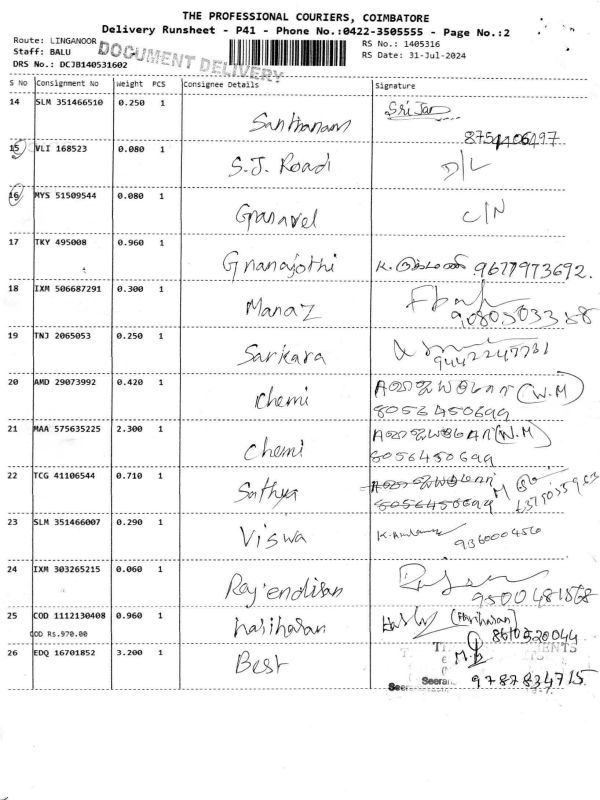 THE PROFESSIONAL COURIERS, COIMBATORE
Delivery Runsheet - P41 - Phone No.:0422-3505555 - Page No.:2
Route: LINGANOOR
RS No.: 1405316
Staff: BALU
DOCUMENT DELIVERY
RS Date: 31-Jul-2024
DRS No.: DCJB140531602
S No Consignment No Weight PCS Consignee Details Signature
14 SLM 351466510 0.250 1 Santhanam
15 VLI 168523 0.080 1 S.J. Roadi D/L
16 MYS 51509544 0.080 1 Gnanavel C/N
17 TKY 495008 0.960 1 Gnanajothi 9677973692.
18 IXM 506687291 0.300 1 Manaz
19 TNJ 2065053 0.250 1 Sarkara
20 AMD 29073992 0.420 1 chemi (W.M)
8056450699
21 MAA 575635225 2.300 1 chemi (W.M)
8056450699
22 TCG 41106544 0.710 1 Sathya
8056450699
23 SLM 351466007 0.290 1 Viswa
24 IXM 303265215 0.060 1 Rajendiran
9500481568
25 COD 1112130408 0.960 1 hariharan (Hariharan)
COD Rs.970.00 8610520044
26 EDQ 16701852 3.200 1 Best
9787834715